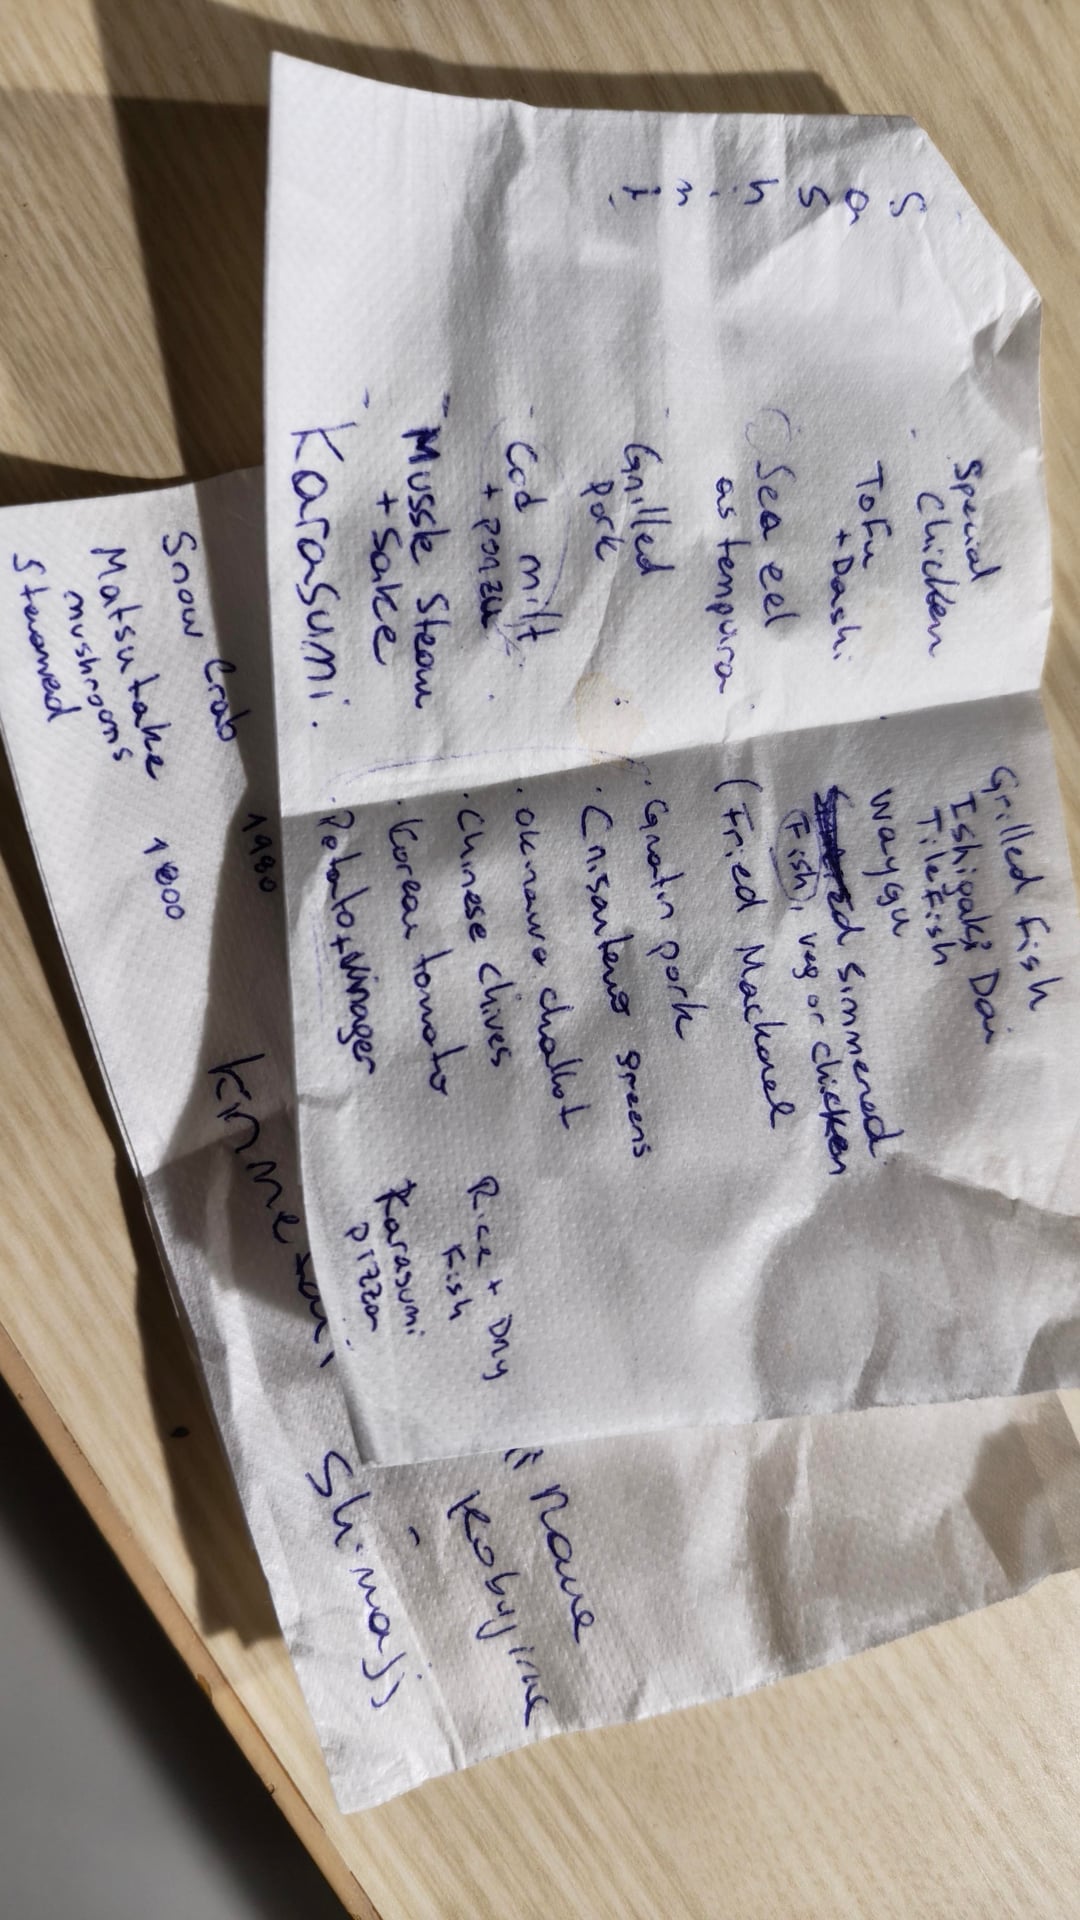 Sashimi
Special
Chicken
Tofu
+ Dashi
Sea eel
as tempura
Grilled
Pork
Cod milt
+ ponzu
Mussle Steam
+ Sake
Karasumi
Grilled Fish
Ishigaki Dai
Tilefish
Waygu
Simmered
Fish, veg or chicken
(Fried Mackarel
Gratin pork
Crisantemo greens
Okinawa challot
Chinese chives
Korean tomato
Potato + vinager
Rice + Dry
Fish
Karasumi
pizza
Snow Crab 1980
Matsutake 1800
mushrooms
Steamed
Kinmedai
Shimaji